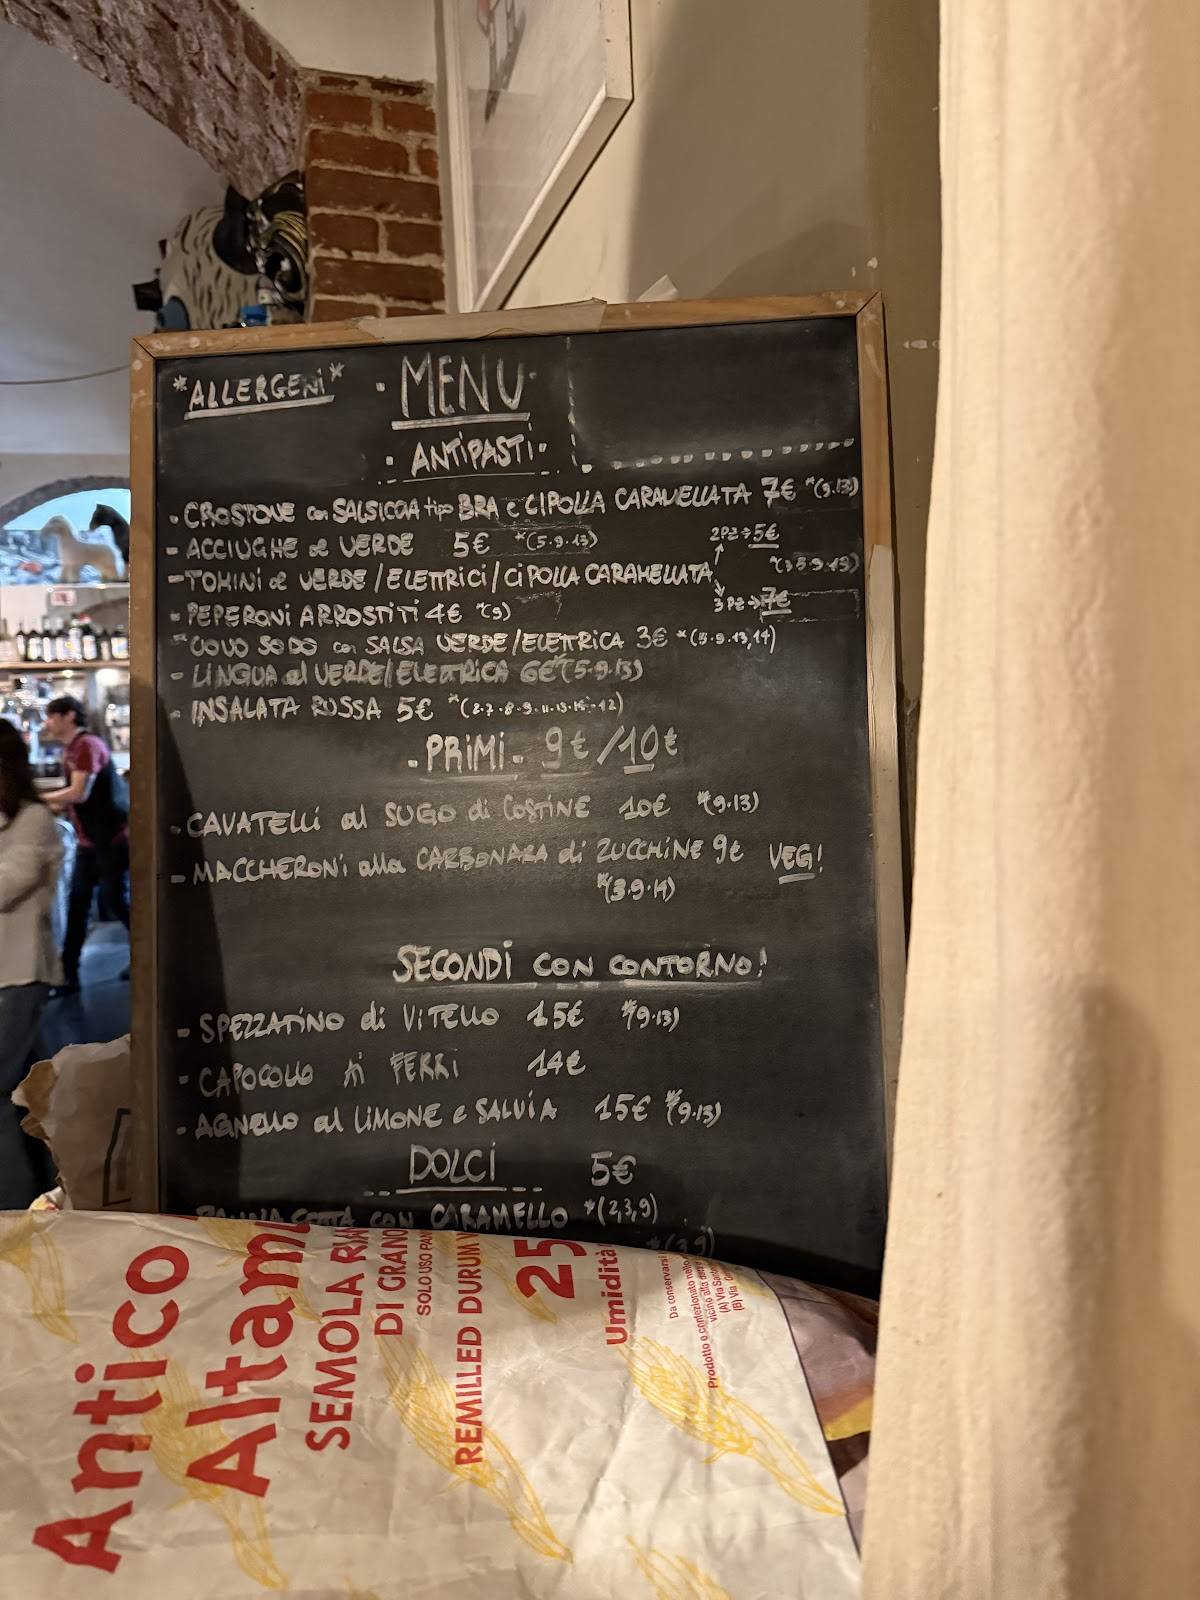 *ALLERGENI*
MENU
ANTIPASTI
CROSTONE con SALSICCIA tipo BRA e CIPOLLA CARAMELLATA 7€ *(9.13)
ACCIUGHE al VERDE 5€ *(5.9.13)
2Pz→5€
TOMINI al VERDE/ELETTRICI/CIPOLLA CARAMELLATA
3Pz→7€
PEPERONI ARROSTITI 4€ *(9)
UOVO SODO con SALSA VERDE/ELETTRICA 3€
LINGUA al VERDE/ELETTRICA 6€*(5.9.13)
INSALATA RUSSA 5€
PRIMI 9€/10€
CAVATELLI al SUGO di COSTINE 10€ *(9.13)
MACCHERONI alla CARBONARA di ZUCCHINE 9€ VEG!
SECONDI CON CONTORNO!
SPEZZATINO di VITELLO 15€ *(9.13)
CAPOCOLLO AI FERRI 14€
AGNELLO al LIMONE e SALVIA 15€ *(9.13)
DOLCI 5€
PANNA COTTA CON CARAMELLO *(2,3,9)
*(3,9)
Antico
Altam
SEMOLA
DI GRANO
SOLO USO
REMILLED DURUM
25
Umidità
Da conservarsi
Prodotto e confezionato
(A) Via
(B) Via